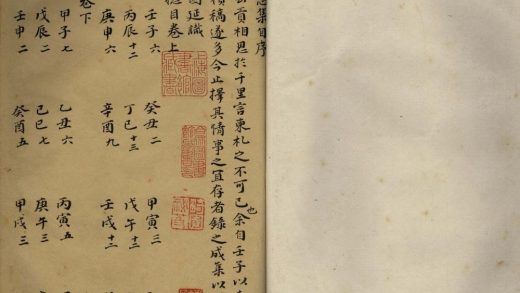 集自序
貢相思於千里言柬札之不可已也余自壬子以
積稿遂多今止擇其情事之宜存者錄之成集以
延識
目卷上
壬子六 癸丑二 甲寅三
丙辰十二 丁巳十三 戊午十二
庚申六 辛酉九 壬戌十二
卷下
甲子七 乙丑六 丙寅五
戊辰二 己巳七 庚午三
壬申二 癸酉五 甲戌三